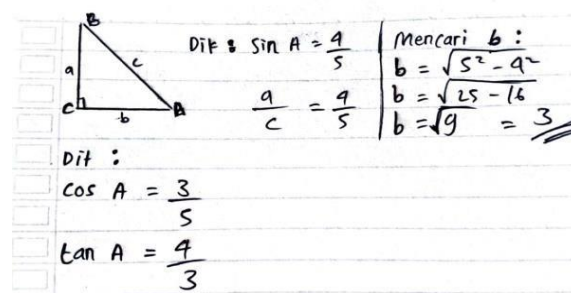 B
a
c
C
b
A
Dik : sin A = 4/5
a/c = 4/5
Mencari b :
b = √5² - 4²
b = √25 - 16
b = √9 = 3
Dit :
cos A = 3/5
tan A = 4/3